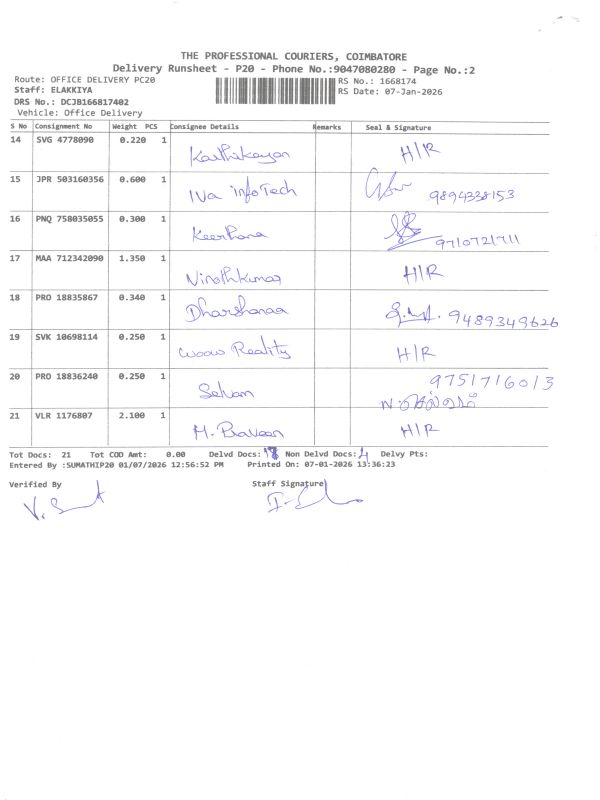 THE PROFESSIONAL COURIERS, COIMBATORE
Delivery Runsheet - P20 - Phone No.:9047080280 - Page No.:2
Route: OFFICE DELIVERY PC20
RS No.: 1668174
Staff: ELAKKIYA
RS Date: 07-Jan-2026
DRS No.: DCJB166817402
Vehicle: Office Delivery
S No Consignment No Weight PCS Consignee Details Remarks Seal & Signature
14 SVG 4778090 0.220 1 Karthikeyan H/R
15 JPR 503160356 0.600 1 IVa infoTech 9894338153
16 PNQ 758035055 0.300 1 Keerthana 9710721711
17 MAA 712342090 1.350 1 Vinothkumar H/R
18 PRO 18835867 0.340 1 Dharshanaa 9489349626
19 SVK 10698114 0.250 1 woow Reality H/R
20 PRO 18836240 0.250 1 Selvam 9751716013
21 VLR 1176807 2.100 1 M. Praveen H/R
Tot Docs: 21 Tot COD Amt: 0.00 Delvd Docs: Non Delvd Docs: 4 Delvy Pts:
Entered By :SUMATHIP20 01/07/2026 12:56:52 PM Printed On: 07-01-2026 13:36:23
Verified By Staff Signature